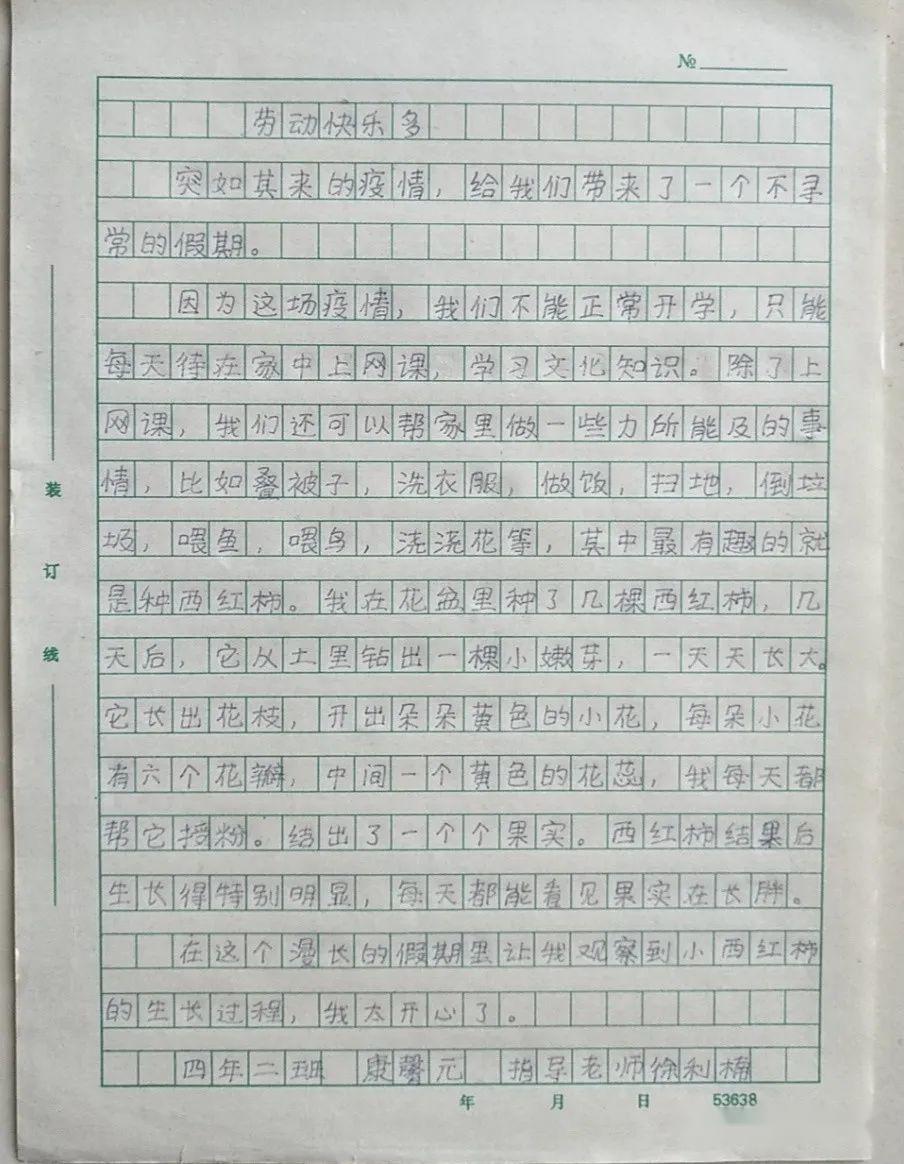 №
劳动快乐多
突如其来的疫情，给我们带来了一个不寻
常的假期。
因为这场疫情，我们不能正常开学，只能
每天待在家中上网课，学习文化知识。除了上
网课，我们还可以帮家里做一些力所能及的事
情，比如叠被子，洗衣服，做饭，扫地，倒垃
圾，喂鱼，喂鸟，浇浇花等，其中最有趣的就
是种西红柿。我在花盆里种了几棵西红柿，几
天后，它从土里钻出一棵小嫩芽，一天天长大。
它长出花枝，开出朵朵黄色的小花，每朵小花
有六个花瓣，中间一个黄色的花蕊，我每天都
帮它授粉。结出了一个个果实。西红柿结果后
生长得特别明显，每天都能看见果实在长胖。
在这个漫长的假期里让我观察到小西红柿
的生长过程，我太开心了。
四年二班 康馨元 指导老师徐利楠
年 月 日 53638
装
订
线